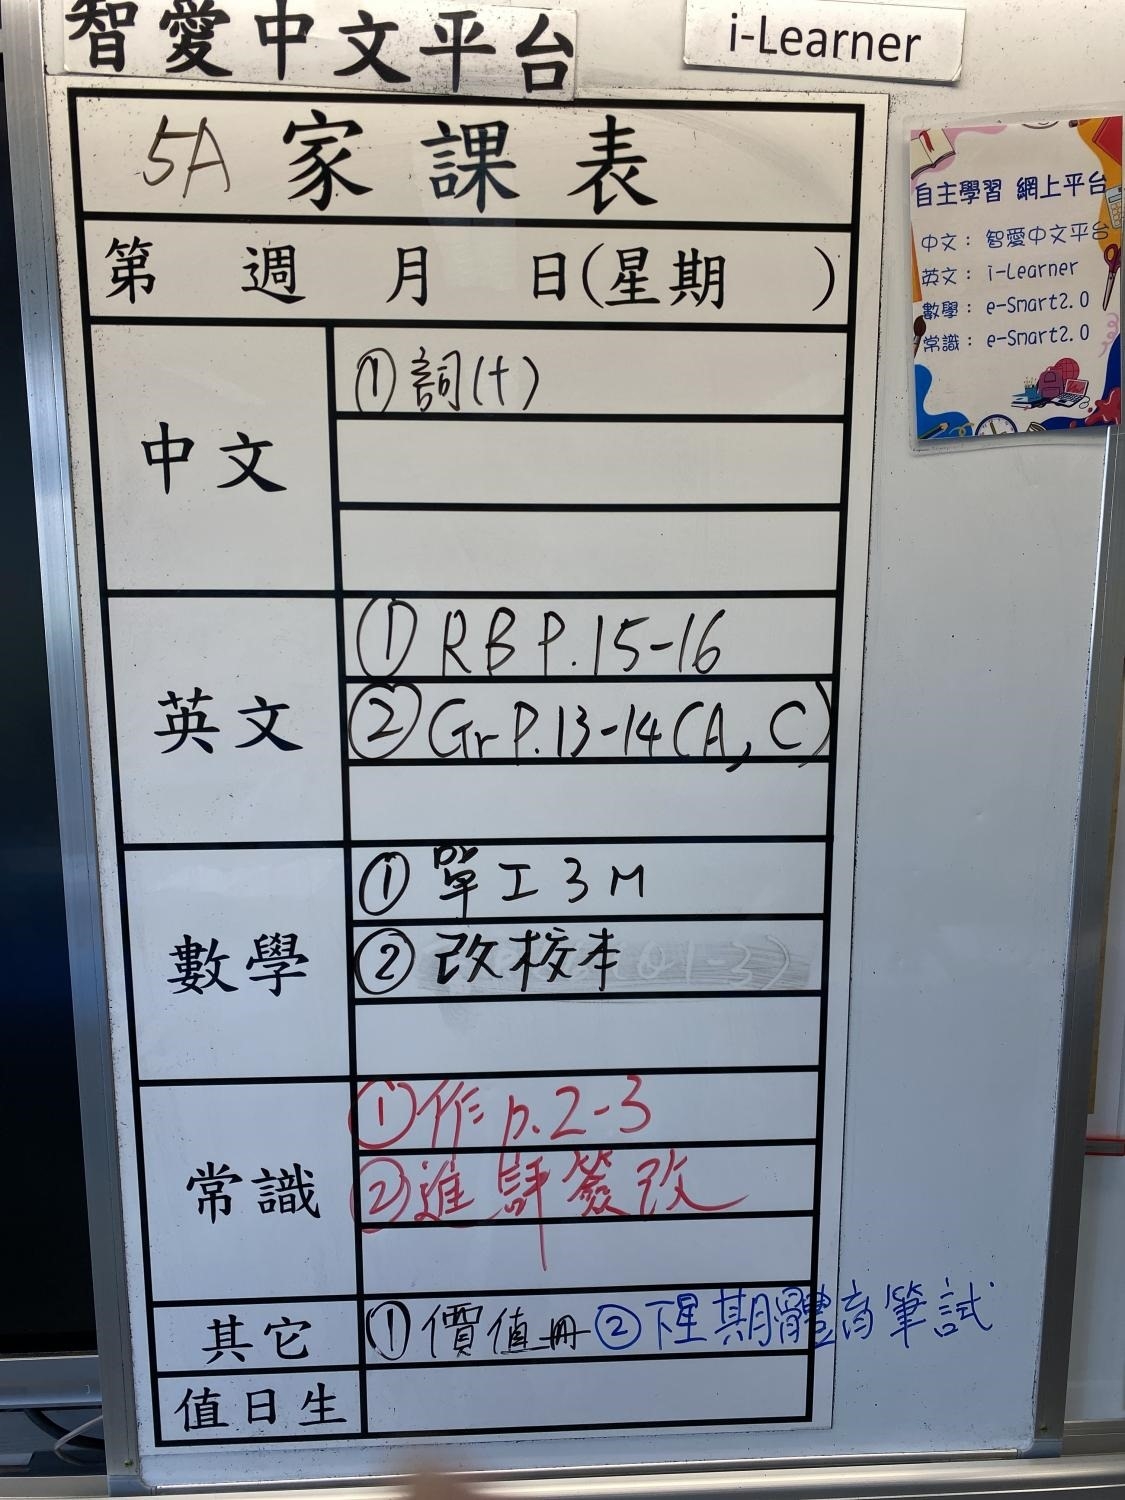 智愛中文平台
i-Learner
5A 家課表
第 週 月 日(星期 )
中文
①詞(十)
英文
①RB P.15-16
②Gr P.13-14(A,C)
數學
①單工3M
②改校本
常識
①作p.2-3
②進評簽改
其它
①價值冊②下星期體育筆試
值日生
自主學習 網上平台
中文：智愛中文平台
英文：i-Learner
數學：e-Smart2.0
常識：e-Smart2.0